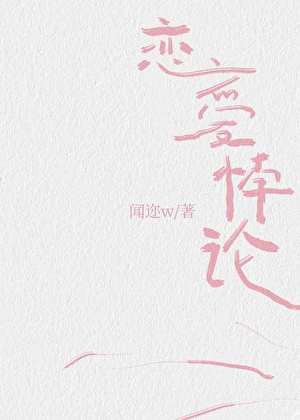 恋爱悖论
闻迩w/著